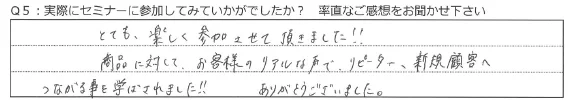 Q5：実際にセミナーに参加してみていかがでしたか？ 率直なご感想をお聞かせ下さい
とても、楽しく参加させて頂きました!!
商品に対して、お客様のリアルな声で、リピーター、新規顧客へ
つながる事を学ばされました!! ありがとうございました。